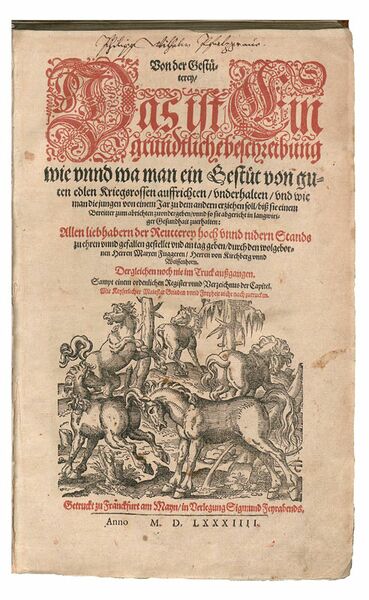 Von der Gestü-
terey/
Das ist Ein
gründtliche beschreibung
wie vnnd wa man ein Gestüt von gu-
ten edlen Kriegsrossen auffrichten/ vnderhalten/ vnd wie
man die jungen von einem Jar zu dem andern erziehen soll/ biß sie einem
Bereitter zum abrichten zuvndergeben/ vnnd so sie abgericht in langwiri-
ger Gesundhait zuerhalten:
Allen liebhabern der Reutterey hoch vnnd nidern Stands
zu ehren vnnd gefallen gestellet vnd an tag geben/ durch den wolgebor-
nen Herren Marxen Fuggeren/ Herren von Kirchberg vnnd
Weissenhorn.
Dergleichen noch nie im Truck außgangen.
Sampt einem ordenlichen Register vnnd Verzeichnuß der Capitel.
Mit Keyserlicher Maiestat Gnaden vnnd Freyheit nicht nach zutrucken.
Getruckt zu Franckfurt am Mayn/ in Verlegung Sigmund Feyrabends,
Anno M. D. LXXXIIII.